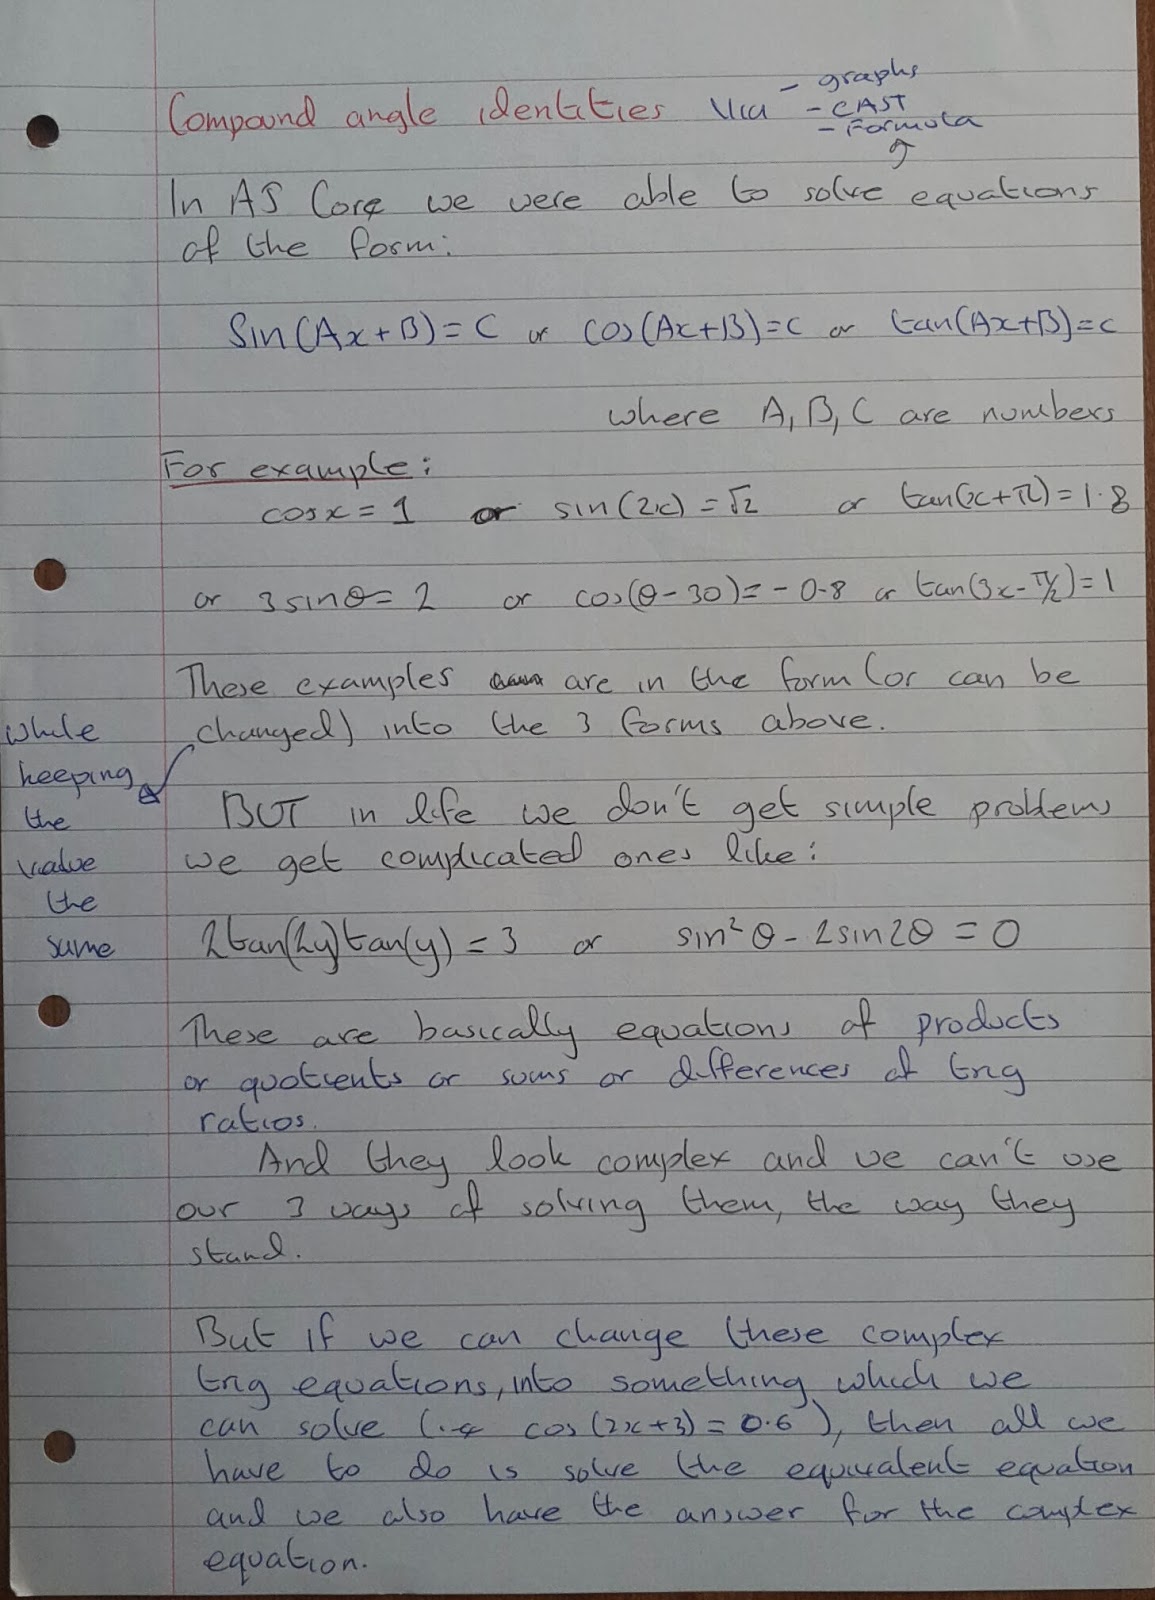 Compound angle identities via - graphs
- CAST
- Formula
In AS Core we were able to solve equations
of the form:
Sin(Ax+B)=C or cos(Ax+B)=C or tan(Ax+B)=C
where A, B, C are numbers
For example:
cosx=1 or sin(2x)=√2 or tan(x+π)=1.8
or 3sinθ=2 or cos(θ-30)=-0.8 or tan(3x-π/2)=1
These examples are in the form (or can be
changed) into the 3 forms above.
while
keeping
the
value
the
same
BUT in life we don't get simple problems
we get complicated ones like:
2tan(2y)tan(y)=3 or sin²θ-2sin2θ=0
These are basically equations of products
or quotients or sums or differences of trig
ratios.
And they look complex and we can't use
our 3 ways of solving them, the way they
stand.
But if we can change these complex
trig equations, into something which we
can solve (i.e cos(2x+3)=0.6), then all we
have to do is solve the equivalent equation
and we also have the answer for the complex
equation.